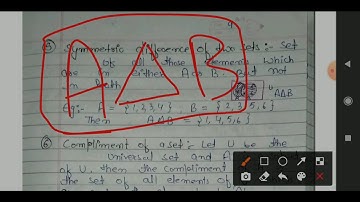 ⑤ Symmetric difference of two sets :- Set
of all those elements which
are in either A or B but not
in both
A Δ B
"AΔB
Eg:- A = {1,2,3,4}, B = {2,3,5,6}
Then AΔB = {1,4,5,6}
⑥ Compliment of a set :- Let U be the
universal set and A
of U, then the Compliment
the set of all elements of